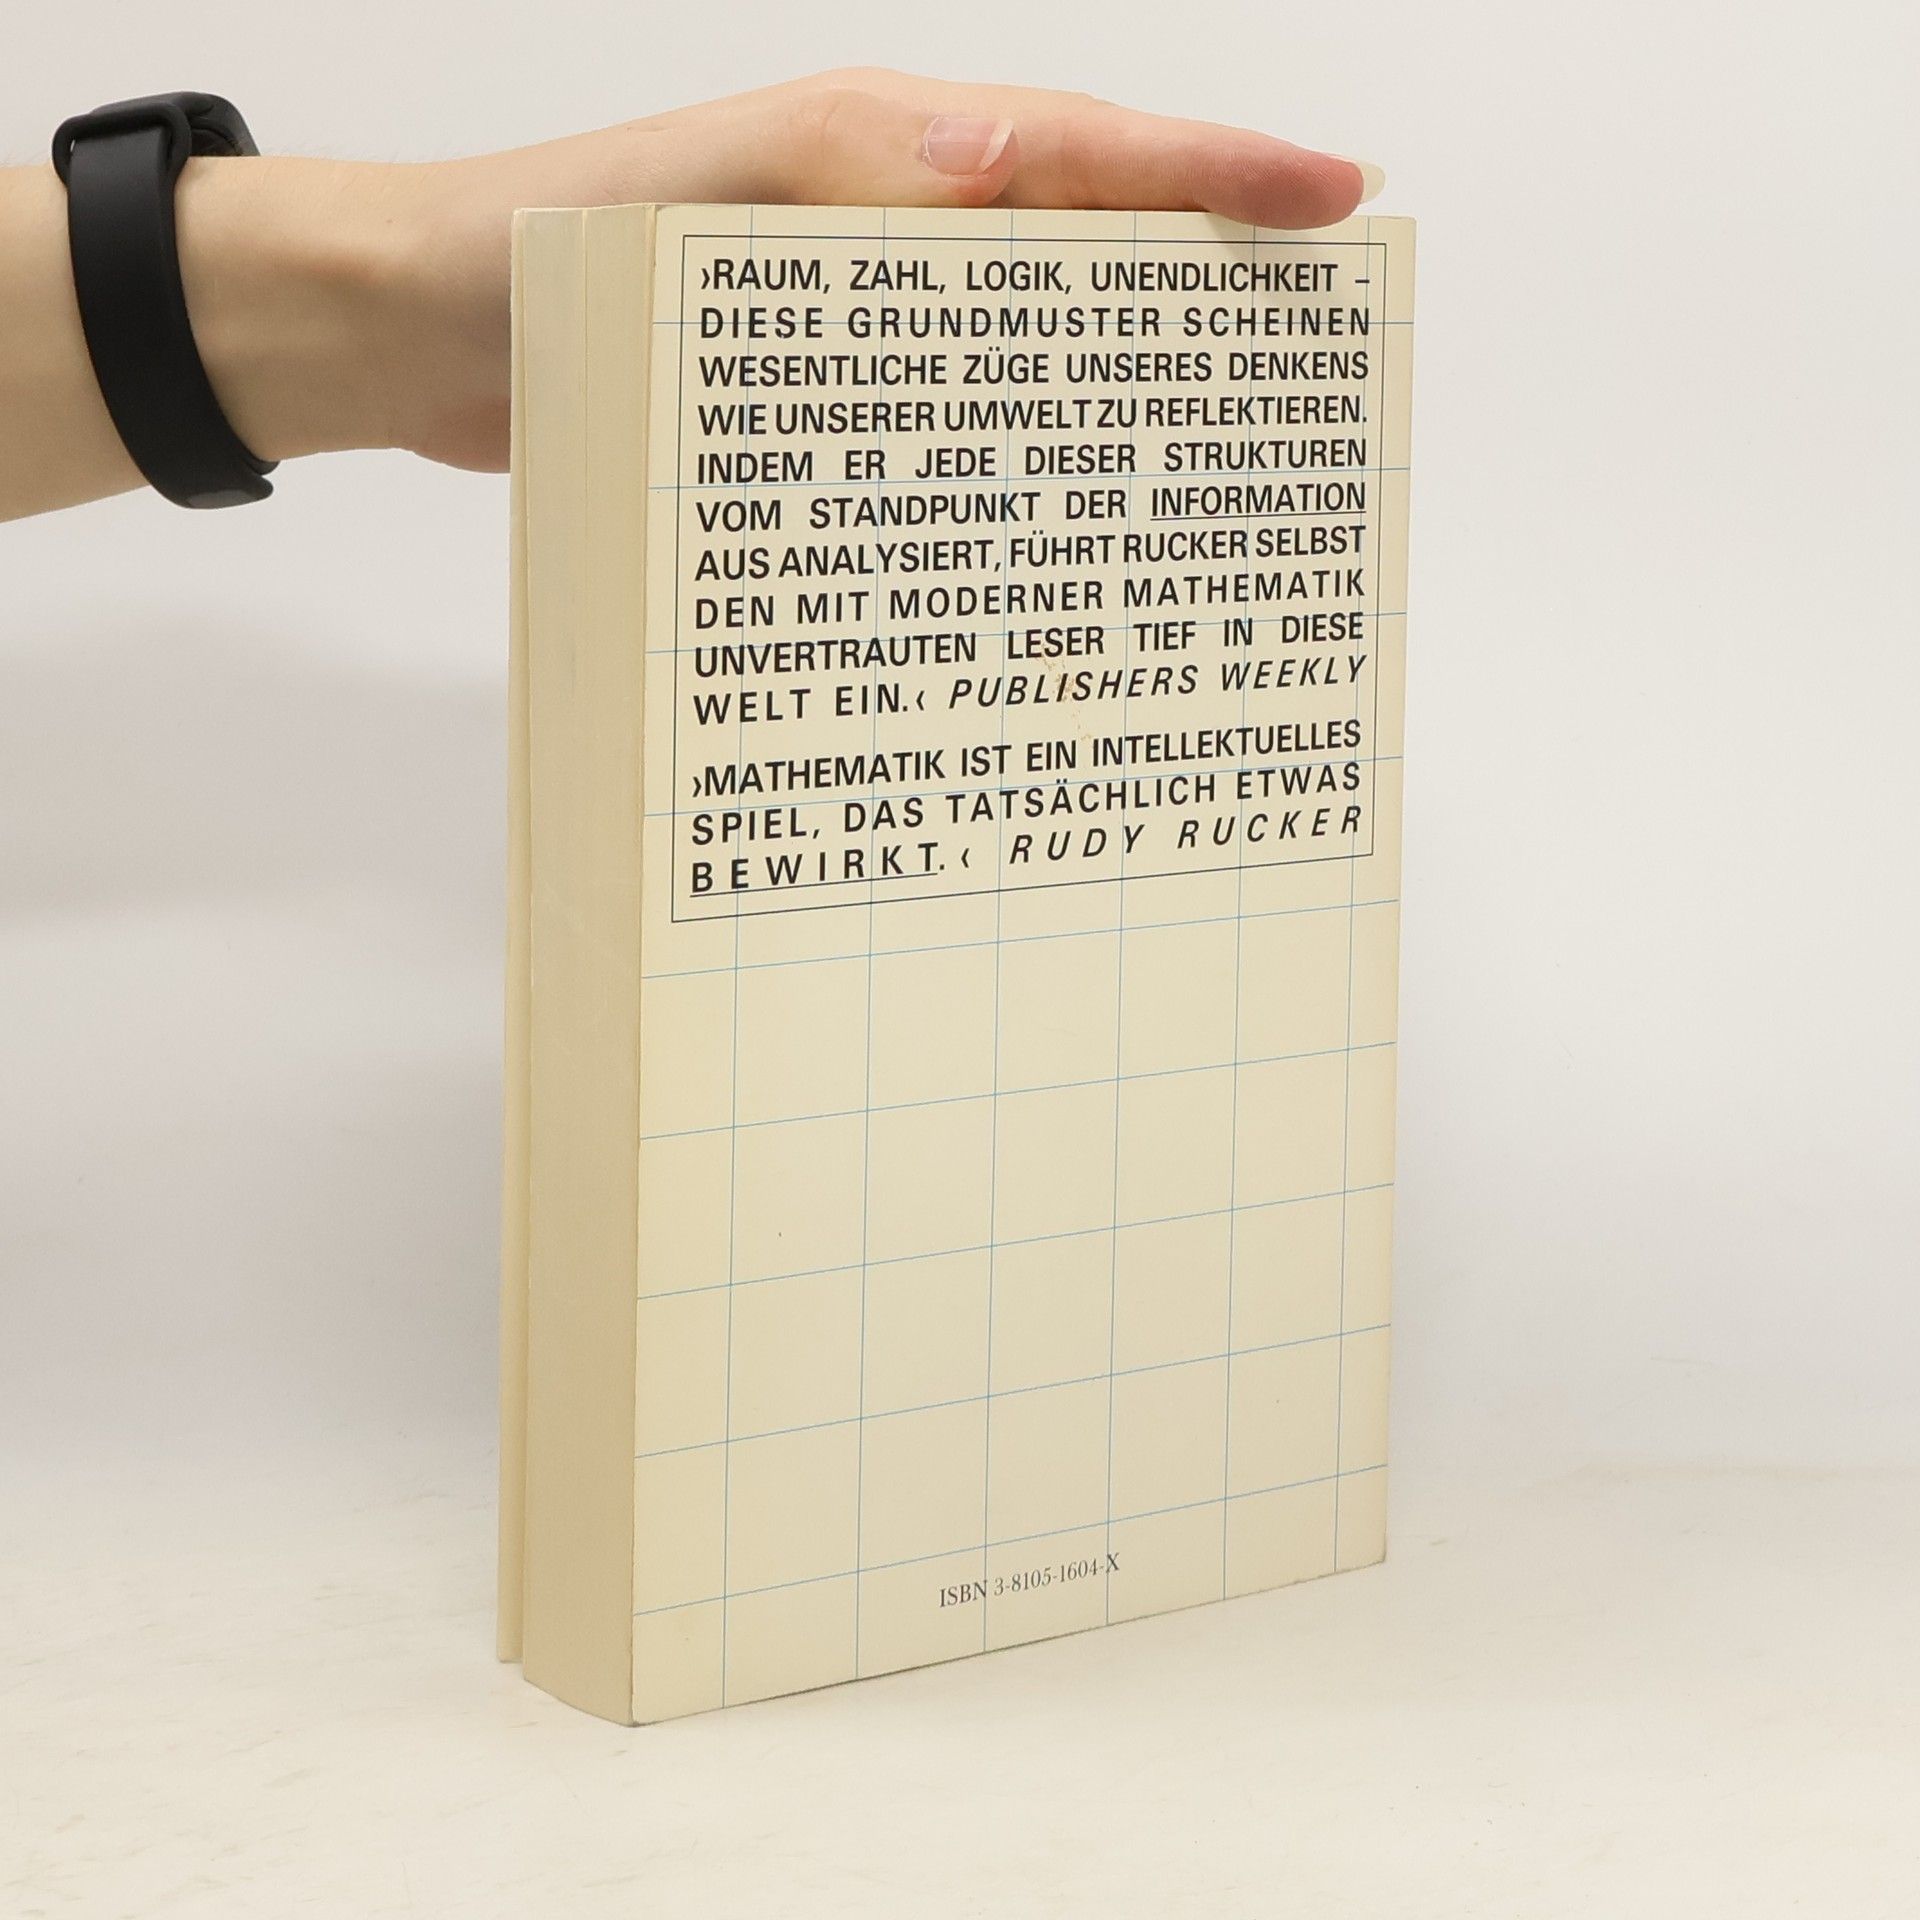 ›RAUM, ZAHL, LOGIK, UNENDLICHKEIT –
DIESE GRUNDMUSTER SCHEINEN
WESENTLICHE ZÜGE UNSERES DENKENS
WIE UNSERER UMWELT ZU REFLEKTIEREN.
INDEM ER JEDE DIESER STRUKTUREN
VOM STANDPUNKT DER INFORMATION
AUS ANALYSIERT, FÜHRT RUCKER SELBST
DEN MIT MODERNER MATHEMATIK
UNVERTRAUTEN LESER TIEF IN DIESE
WELT EIN.‹ PUBLISHERS WEEKLY
›MATHEMATIK IST EIN INTELLEKTUELLES
SPIEL, DAS TATSÄCHLICH ETWAS
BEWIRKT.‹ RUDY RUCKER
ISBN 3-8105-1604-X